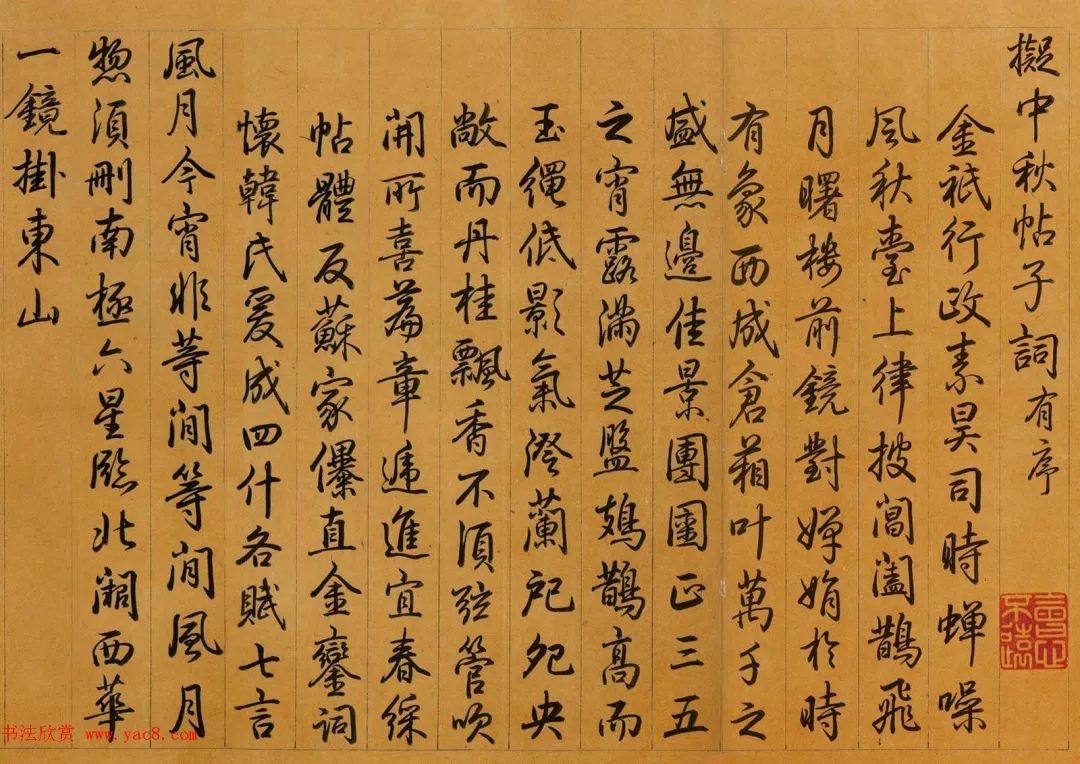 擬中秋帖子詞有序
金祇行政素昊司時蟬噪
風秋臺上律披閶闔鵲飛
月曙樓前鏡對嬋娟於時
有象西成倉葙叶萬千之
盛無邊佳景團圞正三五
之宵露滿芝盤鳷鵲高而
玉繩低影氣澄蘭戺兜央
敞而丹桂飄香不須弦管吹
開所喜篇章遞進宜春綵
帖體反蘇家儤直金鑾詞
懷韓氏爰成四什各賦七言
風月今宵非等閒等閒風月
惣須刪南極六星臨北闕西華
一鏡掛東山
书法欣赏 www.yac8.com